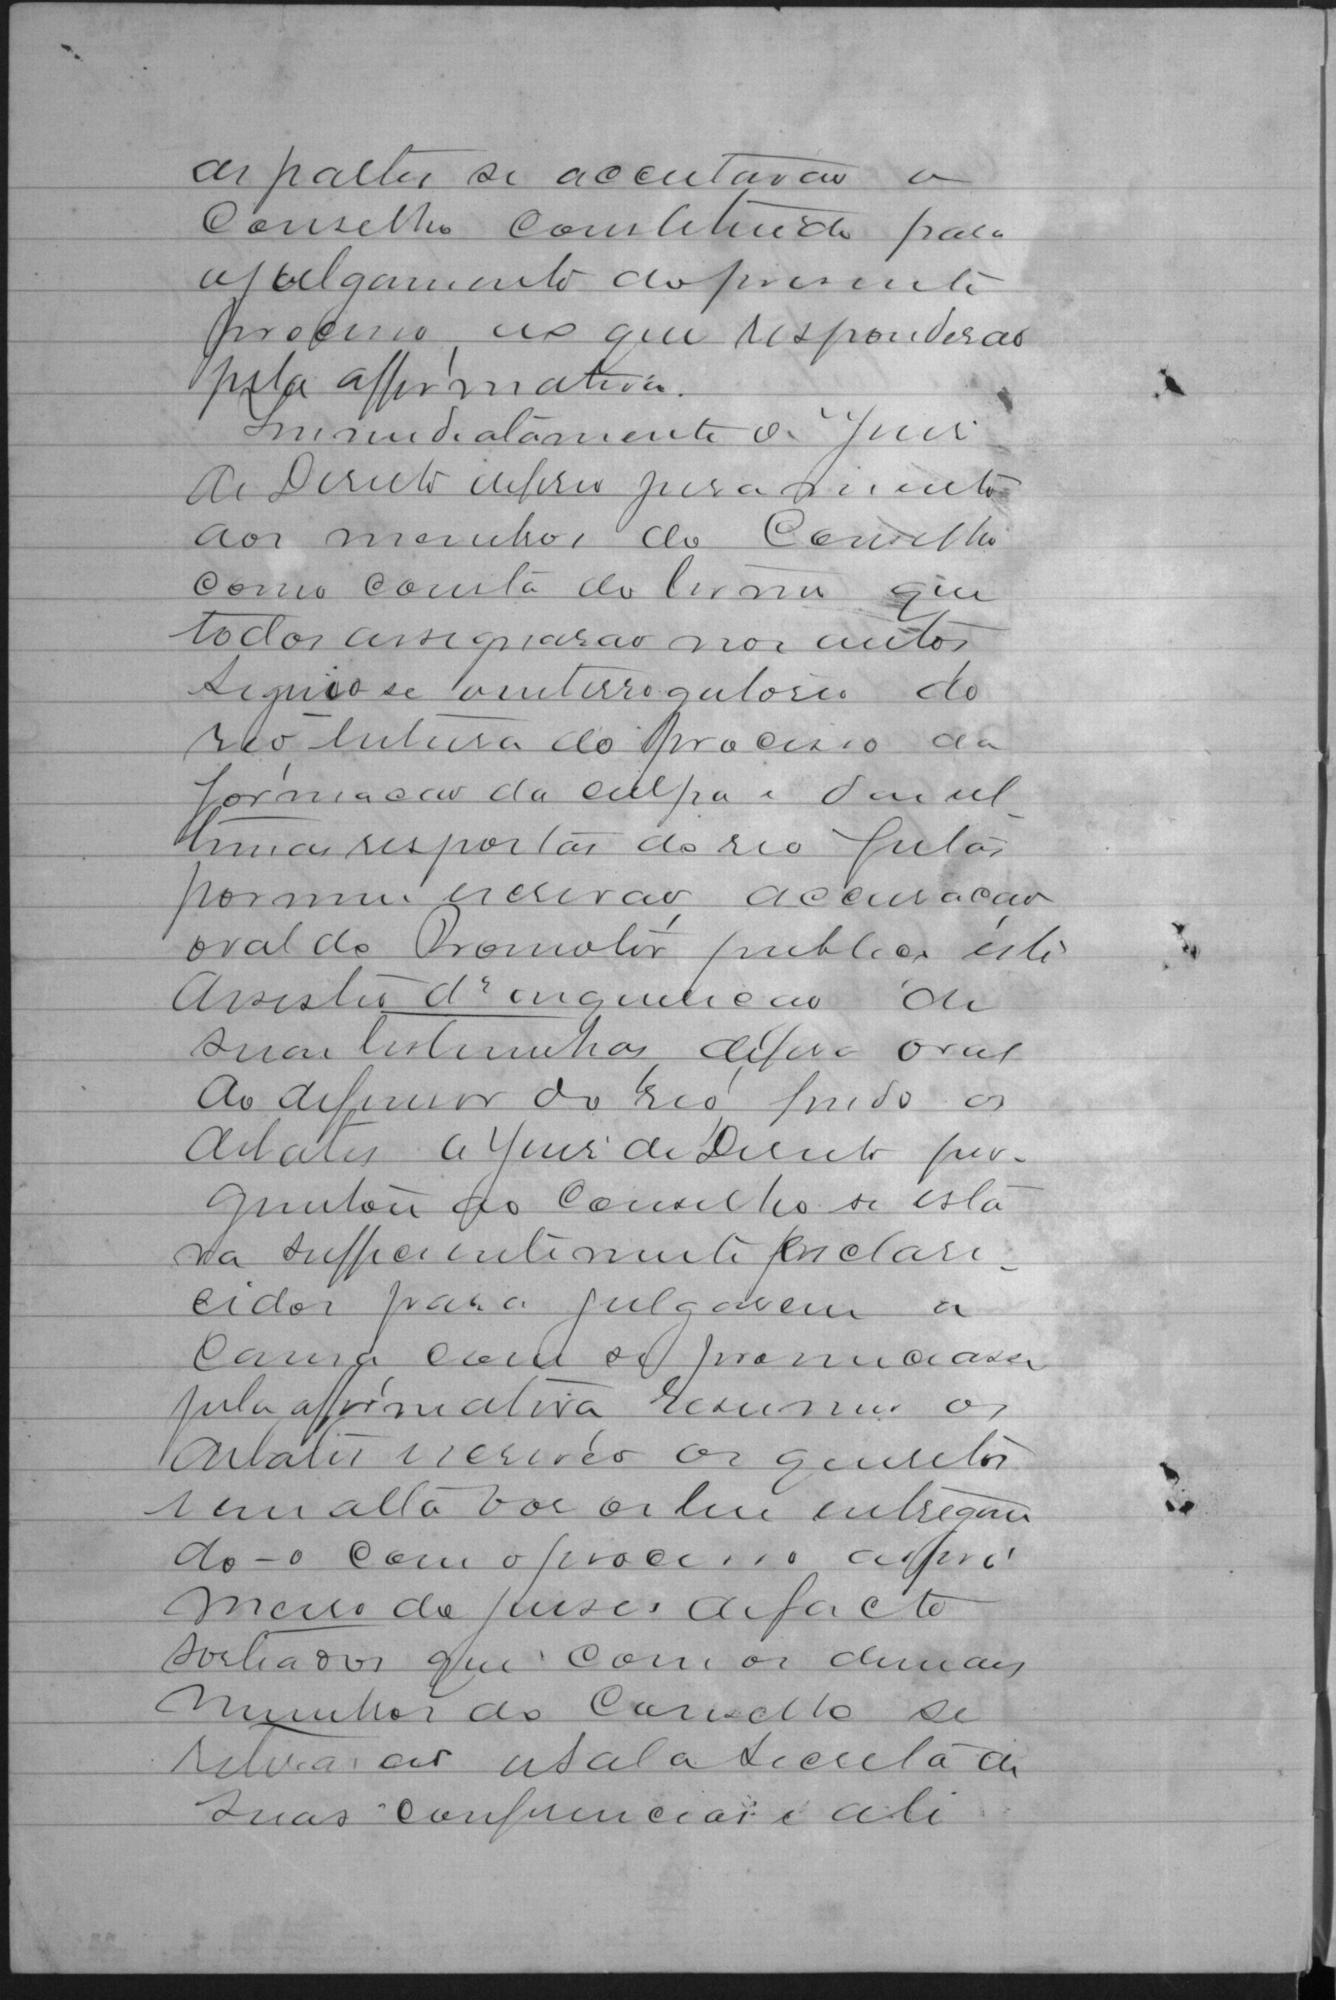 as partes se acceitavão o
Conselho constituido para
o julgamento do presente
processo, ao que responderão
pela affirmativa.
Immediatamente o Juiz
de Direito deferio juramento
aos membros do Conselho
como consta do termo que
todos assignarão nos autos
seguio-se o interrogatorio do
réo leitura do processo da
formação da culpa e das ul-
timas respostas do réo feitas
por mim escrivão, accusação
oral do Promotor publico, este
desistio da inquirição de
suas testemunhas, defesa oral
do defensor do réo, findo os
debates o Juiz de Direito per-
guntou ao Conselho se esta
va sufficientemente esclare-
cidos para julgarem a
causa como se pronunciasse
pela affirmativa resumio os
debates escreveo os quesitos
e em alta voz os leu entregan
do-o com o processo ao pri
meiro do juises de facto
sorteados que com os demais
membros do Conselho se
retirarão a sala secreta de
suas conferencias e ali